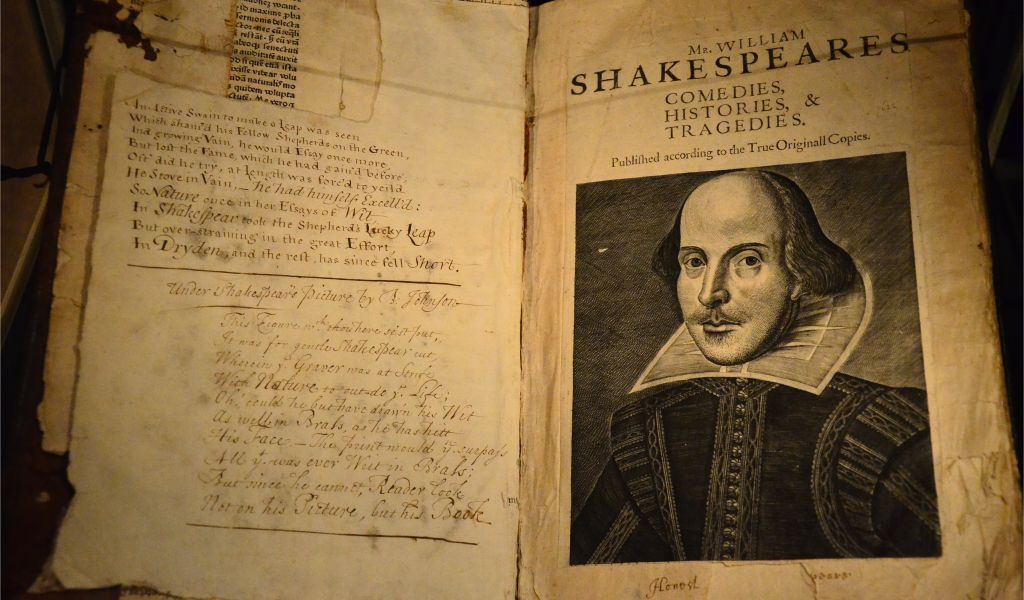 id maxime pha
sermonis delecta
senectuti
auxit
videar volu
quidem volupta
Me vero
An Active Swain to make a Leap was seen
Which sham'd his Fellow Shepherds on the Green,
And growing Vain, he would Essay once more,
But lost the Fame, which he had gain'd before;
Oft' did he try, at Length was forc'd to yeild.
He Strove in Vain, – he had himself Excell'd:
So Nature once in her Essays of Wit
In Shakespear took the Shepherd's Lucky Leap
But over-straining in the great Effort,
In Dryden, and the rest, has since fell Short.
Under Shakespear's Picture by J. Johnson
This Figure wch thou here seest put,
It was for gentle Shakespear cut,
Wherein ye Graver was at Strife
With Nature to out-do ye Life;
Oh, could he but have drawn his Wit
As well in Brass, as he has hitt
His Face – The print would yn surpass
All yt was ever Writ in Brass;
But since he cannot, Reader look
Not on his Picture, but his Book
MR. WILLIAM
SHAKESPEARES
COMEDIES,
HISTORIES, &
TRAGEDIES.
Published according to the True Originall Copies.